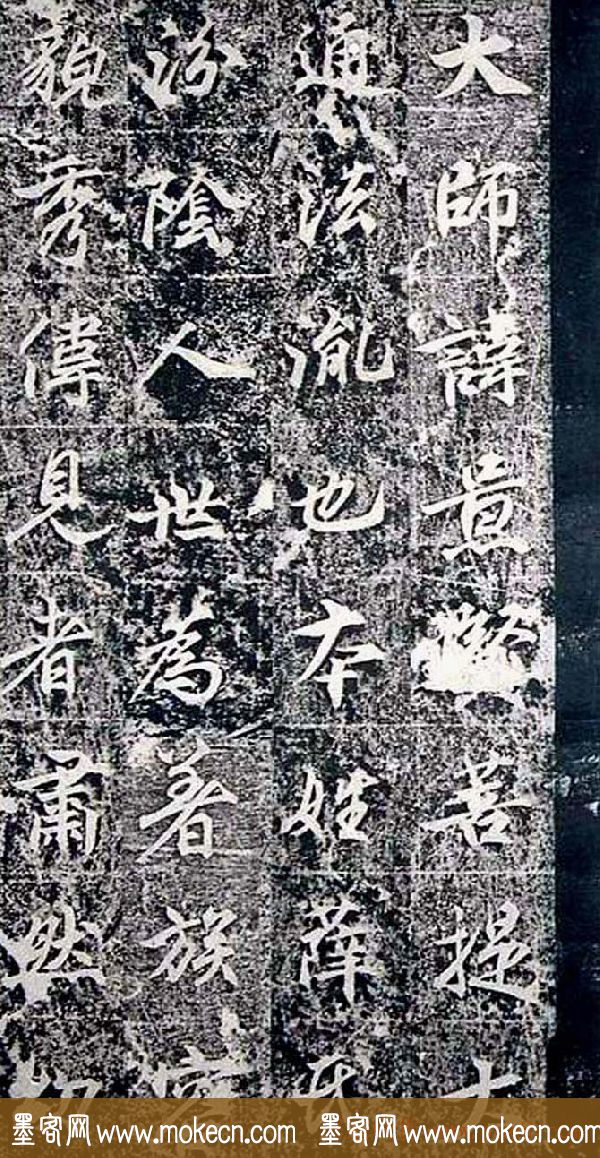 大師諱景菩提大
通法胤也本姓薛氏
汾陰人世為著族容
貌秀偉見者肅然
墨客网 www.mokecn.com 墨客网 www.mokecn.com